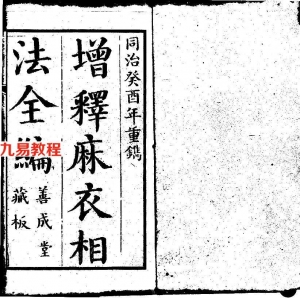 同治癸酉年重鐫
增釋麻衣相
法全編
善成堂
藏板
九易教程